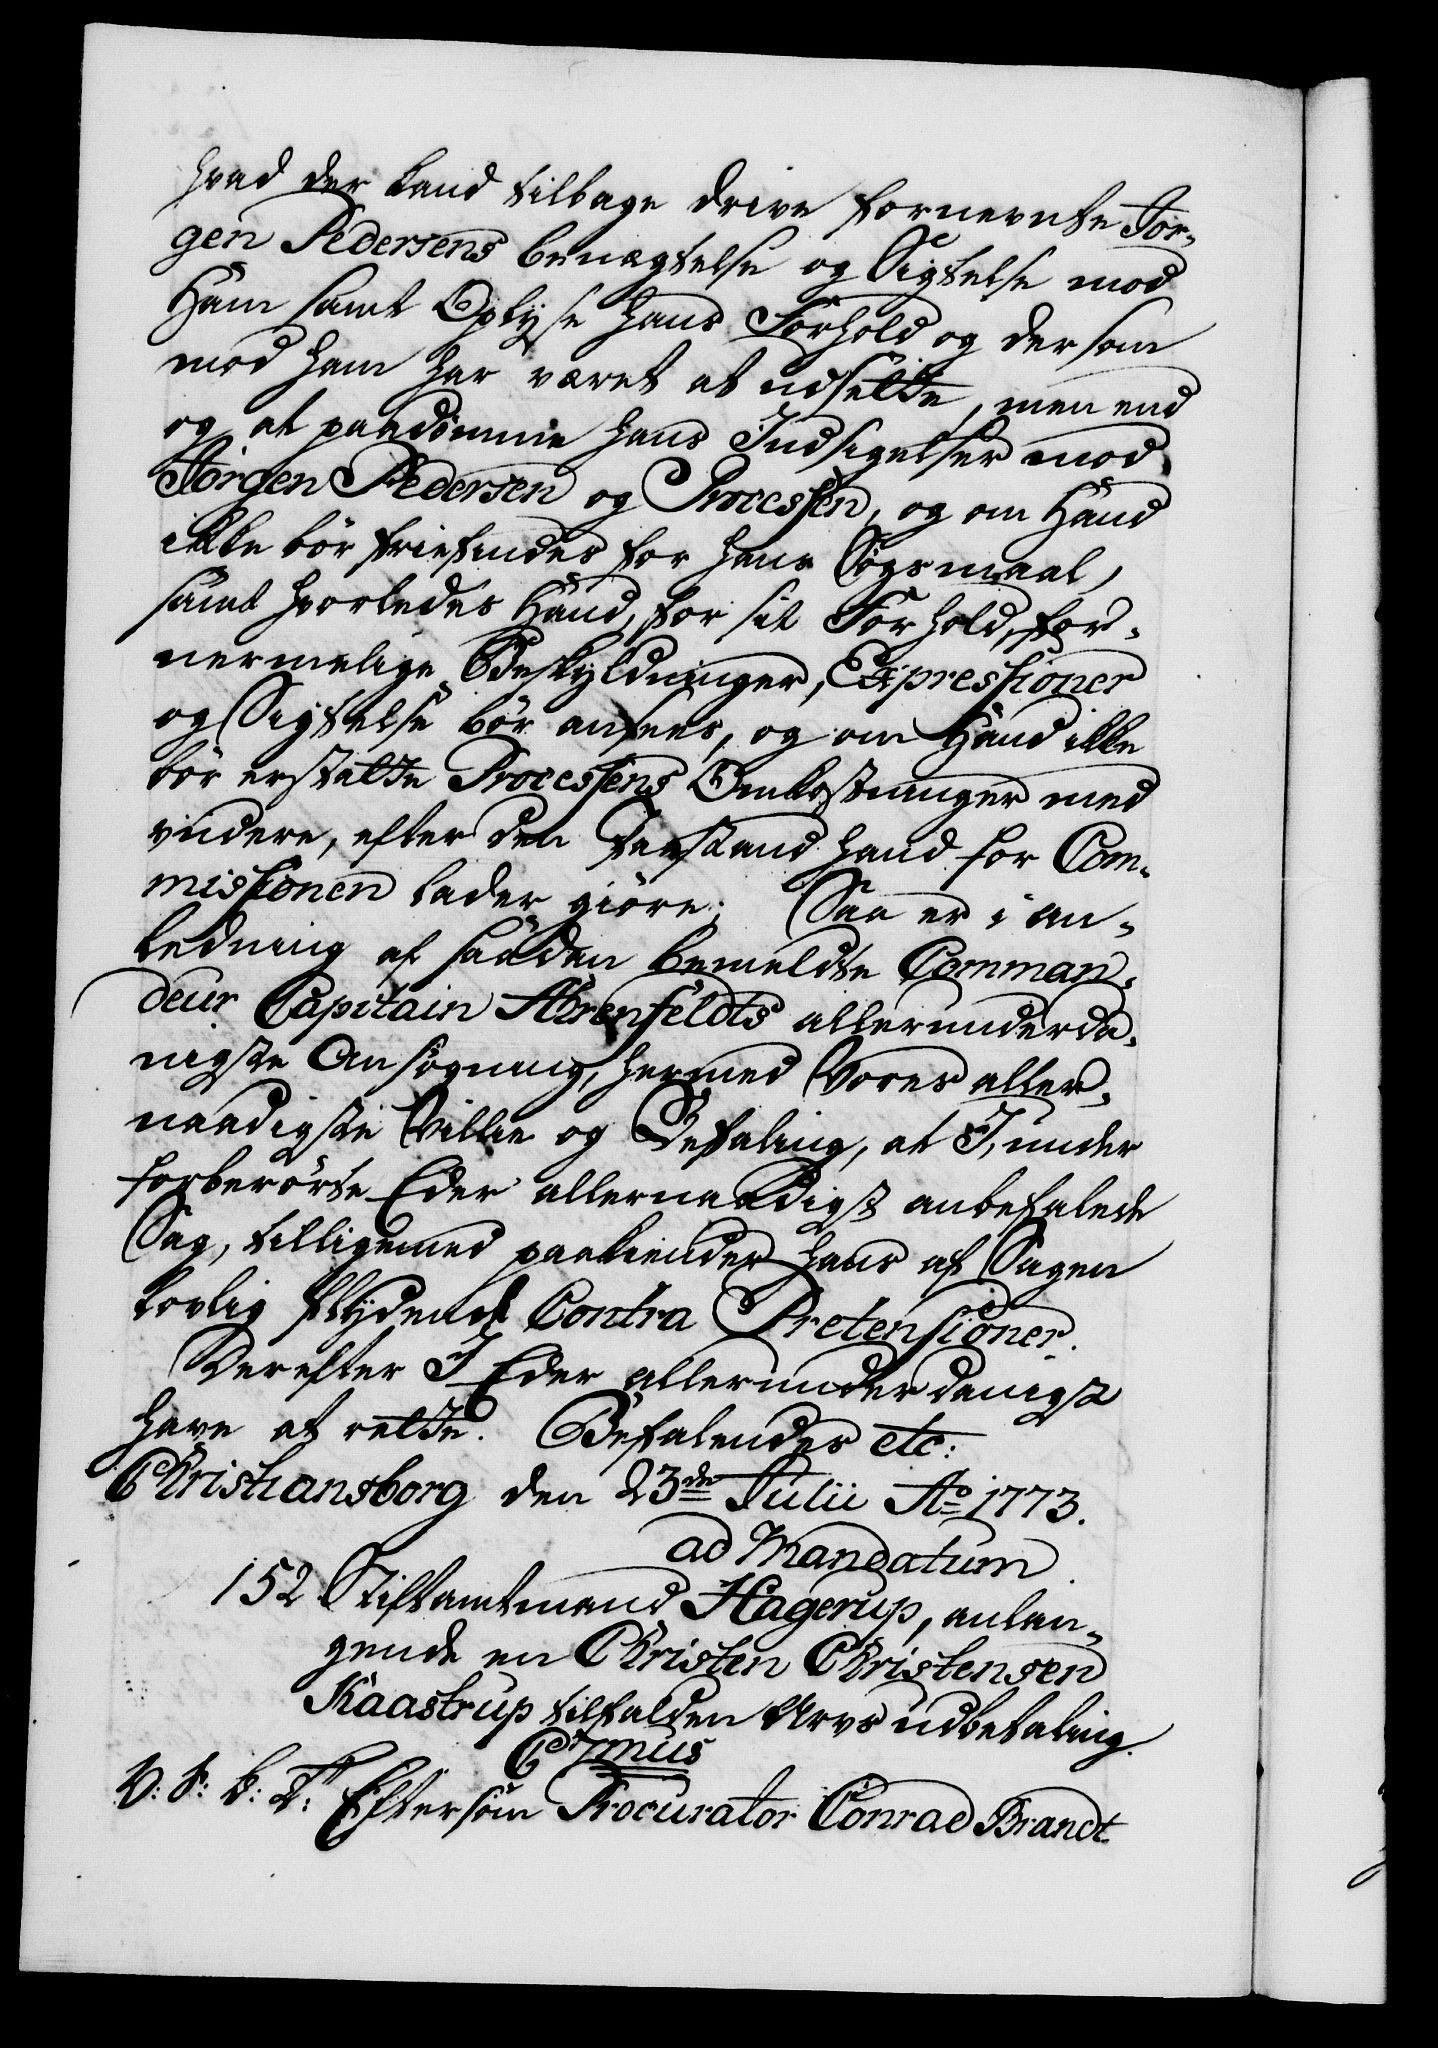 hvad der kand tilbage drive fornevnte Jør-
gen Pedersens benægtelse og Sigtelse mod
Ham samt Oplyse hans Forhold og der som
mod ham har været at udsette, men end
og at paadømme hans Indsigelser mod
Jørgen Pedersen og Processen, og om Hand
ikke bør friefindes for hans Søgsmaal,
samt hvorledes Hand, for sit Forhold, for-
nermelige Beskyldninger, Expressioner
og Sigtelse bør ansees, og om Hand ikke
bør erstatte Processens Omkostninger med
videre, efter den Paastand hand for Com-
missionen lader giøre; Saa er i an-
ledning af saadan bemeldte Comman-
deur Capitain Ahrenfeldts allerunderda-
nigste Ansøgning, hermed Vores aller-
naadigste Villie og Befaling, at I, under
forberørte Eder allernaadigst anbefalede
Sag, tilligemed paakiender hans af Sagen
lovlig flydende Contra Pretensioner.
Derefter I Eder allerunderdanigst
have at rette. Befalendes etc:
Christiansborg den 23de Julii Ao 1773.
ad Mandatum
152 Stiftamtmand Hagerup, anlan-
gende en Christen Christensen
Kaastrup tilfalden Arvs udbetaling.
C 7mus
V: S: B: T: Eftersom Procurator Conrad Brandt